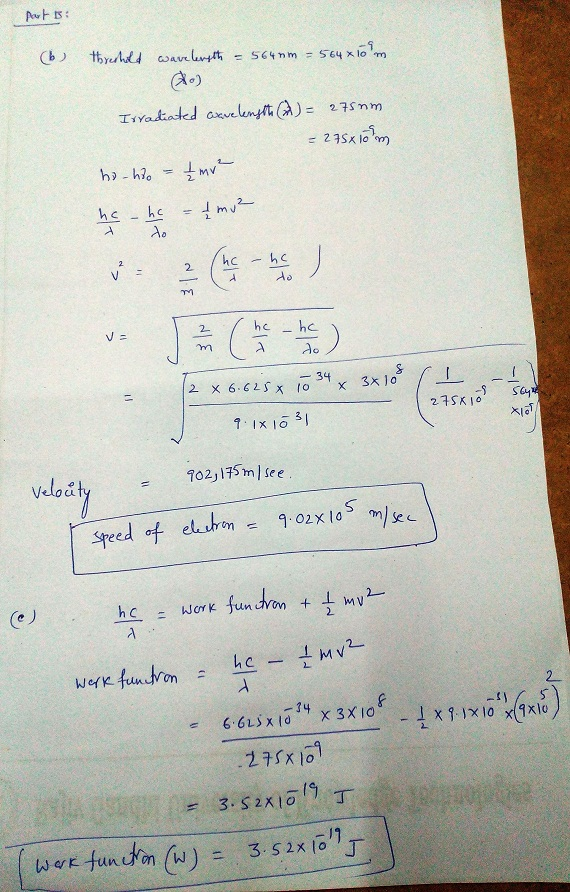 Part B:
(b) threshold wavelength = 564nm = 564×10⁻⁹m
(λ₀)
Irradiated wavelength (λ) = 275nm
= 275×10⁻⁹m
hν - hν₀ = ½ mv²
hc/λ - hc/λ₀ = ½ mv²
v² = 2/m (hc/λ - hc/λ₀)
v = √(2/m (hc/λ - hc/λ₀))
= √(2 × 6.625 × 10⁻³⁴ × 3×10⁸ / 9.1×10⁻³¹ (1/275×10⁻⁹ - 1/564×10⁻⁹))
velocity = 902,175m/sec.
speed of electron = 9.02×10⁵ m/sec
(c) hc/λ = work function + ½ mv²
work function = hc/λ - ½ mv²
= 6.625×10⁻³⁴ × 3×10⁸ / 275×10⁻⁹ - ½ × 9.1×10⁻³¹ × (9×10⁵)²
= 3.52×10⁻¹⁹ J
Work function (W) = 3.52×10⁻¹⁹ J